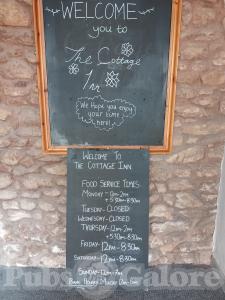 WELCOME
you to
The Cottage
Inn
We Hope you enjoy
your time
here!
WELCOME TO
THE COTTAGE INN
FOOD SERVICE TIMES:
MONDAY - 12pm-2pm
+ 5:30pm-8:30pm
TUESDAY - CLOSED
WEDNESDAY - CLOSED
THURSDAY - 12pm-2pm
+ 5:30pm-8:30pm
FRIDAY - 12pm-8:30pm
SATURDAY - 12pm-8pm
SUNDAY - 12pm-7pm
Pubs Galore